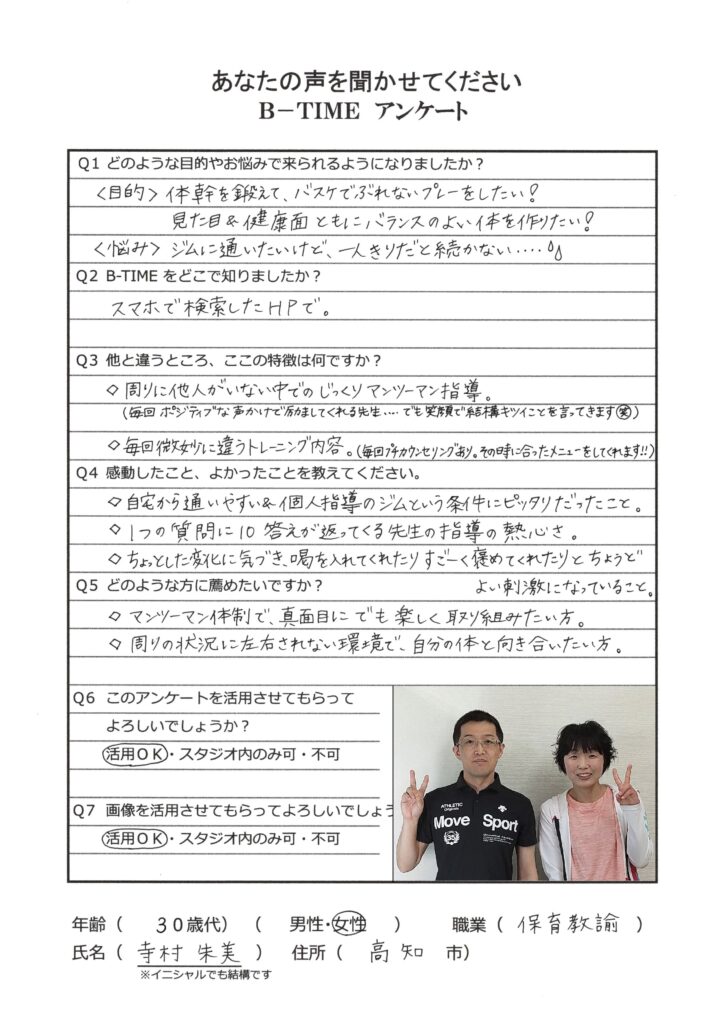 あなたの声を聞かせてください
B－TIME アンケート
Q1 どのような目的やお悩みで来られるようになりましたか？
〈目的〉体幹を鍛えて、バスケでぶれないプレーをしたい！
見た目＆健康面ともにバランスのよい体を作りたい！
〈悩み〉ジムに通いたいけど、一人きりだと続かない‥‥
Q2 B-TIME をどこで知りましたか？
スマホで検索したHPで。
Q3 他と違うところ、ここの特徴は何ですか？
◇周りに他人がいない中でのじっくりマンツーマン指導。
(毎回ポジティブな声かけで励ましてくれる先生‥‥でも笑顔で結構キツイことを言ってきます㊋笑)
◇毎回微妙に違うトレーニング内容。(毎回プチカウンセリングあり。その時に合ったメニューをしてくれます!!)
Q4 感動したこと、よかったことを教えてください。
◇自宅から通いやすい＆個人指導のジムという条件にピッタリだったこと。
◇1つの質問に10答えが返ってくる先生の指導の熱心さ。
◇ちょっとした変化に気づき、喝を入れてくれたりすごーく褒めてくれたりとちょうど
よい刺激になっていること。
Q5 どのような方に薦めたいですか？
◇マンツーマン体制で、真面目にでも楽しく取り組みたい方。
◇周りの状況に左右されない環境で、自分の体と向き合いたい方。
Q6 このアンケートを活用させてもらって
よろしいでしょうか？
活用ＯＫ・スタジオ内のみ可・不可
Q7 画像を活用させてもらってよろしいでしょう
活用ＯＫ・スタジオ内のみ可・不可
ATHLETIC
Move Sport
35
年齢（ 30歳代）（ 男性・女性 ） 職業（ 保育教諭 ）
氏名（ 寺村 朱美 ） 住所（ 高知 市）
※イニシャルでも結構です